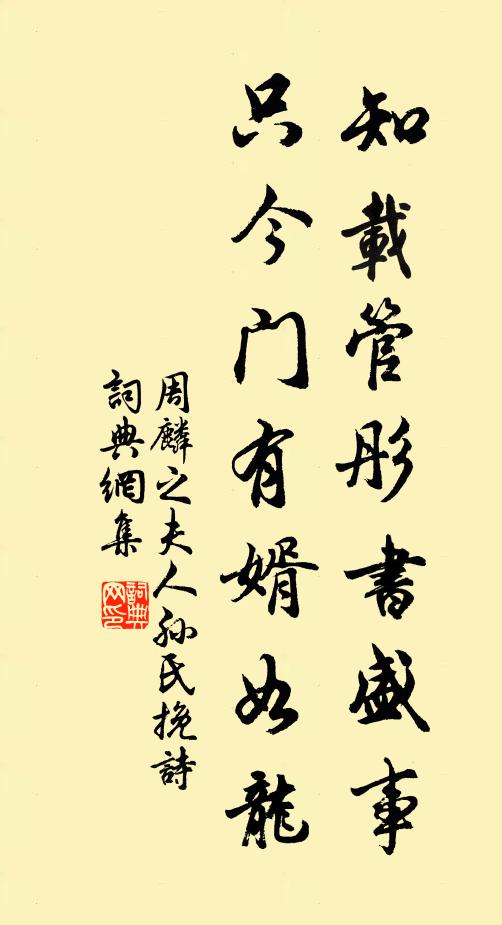 知載管彤書盛事
只今門有婿如龍
周麟之夫人孙氏挽詩
詞典網集
詞典网印